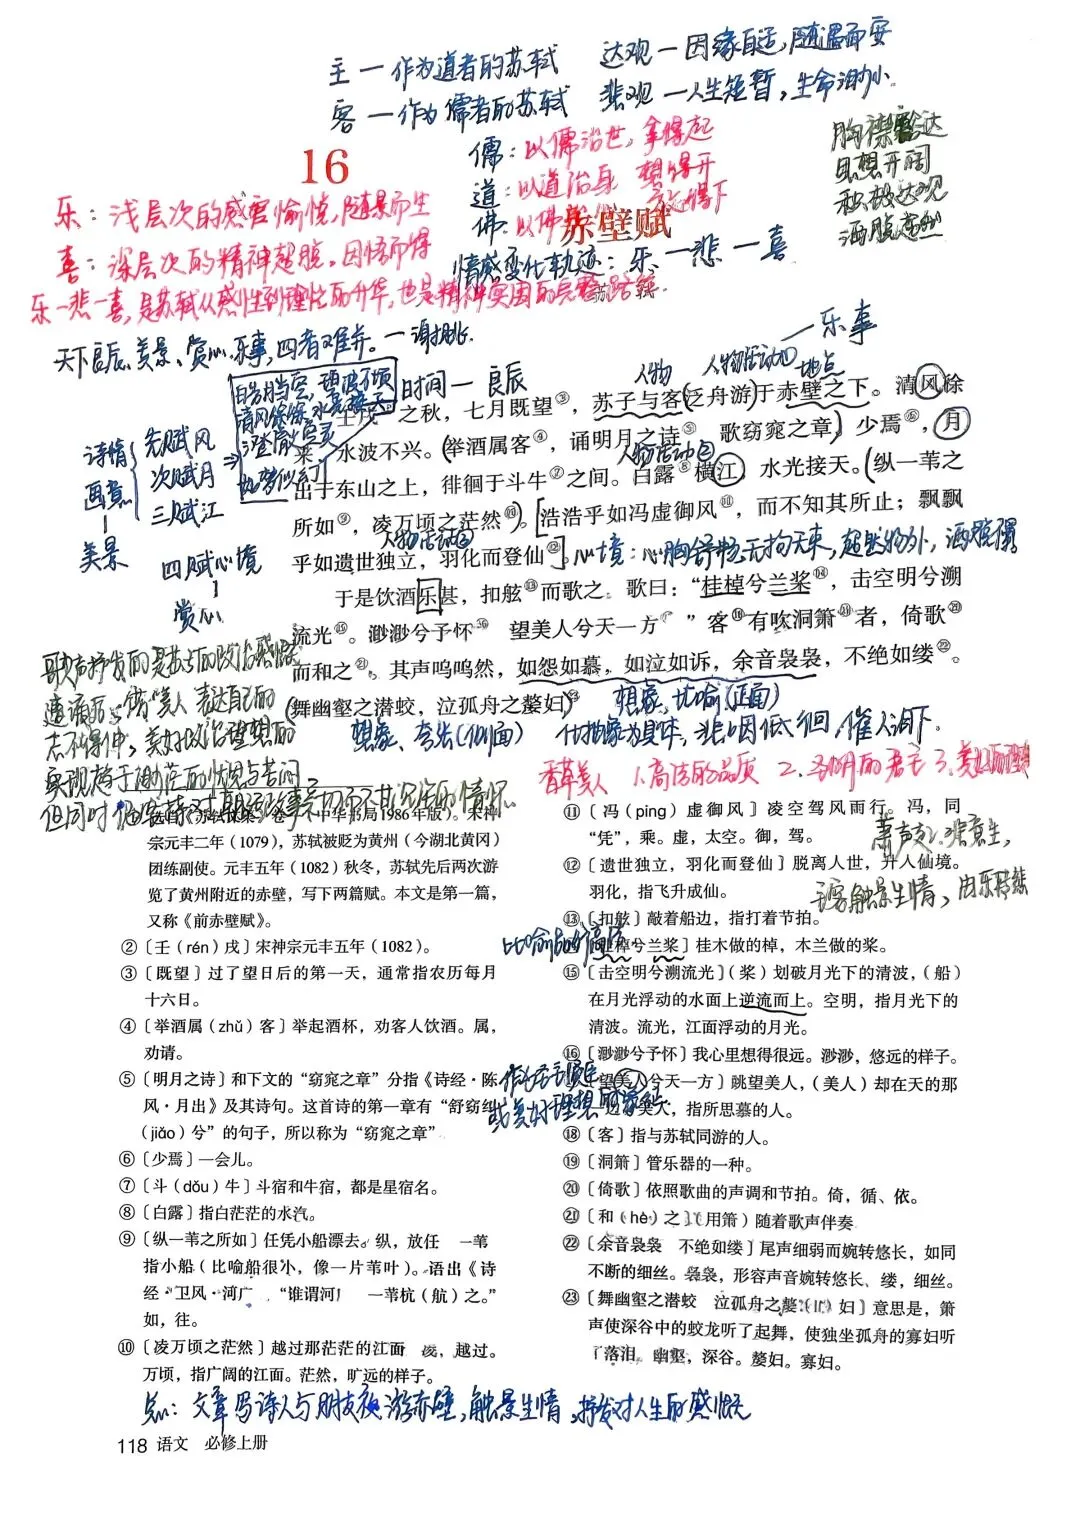 主一作为道者的苏轼 达观一因缘自适，随遇而安
客一作为儒者的苏轼 悲观一人生短暂，生命渺小.
儒：以儒治世，拿得起
道：以道治身 想得开
佛：以佛 放得下
胸襟豁达
思想开阔
积极达观
洒脱
16
赤壁赋
苏轼
乐：浅层次的感官愉悦，随景而生
喜：深层次的精神超脱，因悟而得
情感变化轨迹：乐一悲一喜
乐一悲一喜，是苏轼从感性到理性的升华，也是精神突围的完整路径.
天下良辰、美景、赏心、乐事，四者难并。一谢
一乐事
人物 人物活动① 地点
时间一良辰
诗情
画意
美景
先赋风
次赋月
三赋江
四赋心境
赏心
壬戌 之秋，七月既望③，苏子与客泛舟游于赤壁之下。清风徐
来 水波不兴。举酒属客④，诵明月之诗⑤ 歌窈窕之章 少焉⑥，月
人物活动②
出于东山之上，徘徊于斗牛⑦之间。白露⑧横江 水光接天。纵一苇之
所如⑨，凌万顷之茫然⑩。浩浩乎如冯虚御风⑪，而不知其所止；飘飘
人物活动③
乎如遗世独立，羽化而登仙⑫。心境：心胸舒畅，无拘无束，超然物外，洒脱
于是饮酒乐甚，扣舷⑬而歌之。歌曰：“桂棹兮兰桨⑭，击空明兮溯
流光⑮。渺渺兮予怀⑯ 望美人兮天一方 ”客⑱有吹洞箫⑲者，倚歌⑳
而和之㉑。其声呜呜然，如怨如慕，如泣如诉，余音袅袅，不绝如缕㉒。
舞幽壑之潜蛟，泣孤舟之嫠妇㉓
想象、比喻(正面)
想象、夸张(侧面) 化抽象为具体，悲咽低徊，催人泪下.
歌声抒发的是苏轼的政治感慨
美人 表达自己的
志不得伸，美好政治理想的
实现趋于渺茫的状况与苦闷
但同时
香草美人 1.高洁的品质 2.圣明的君主 3.美好的理想
箫声
触景生情，由乐转悲
中华书局1986年版）。宋神
宗元丰二年（1079），苏轼被贬为黄州（今湖北黄冈）
团练副使。元丰五年（1082）秋冬，苏轼先后两次游
览了黄州附近的赤壁，写下两篇赋。本文是第一篇，
又称《前赤壁赋》。
②〔壬（rén）戌〕宋神宗元丰五年（1082）。
③〔既望〕过了望日后的第一天，通常指农历每月
十六日。
④〔举酒属（zhǔ）客〕举起酒杯，劝客人饮酒。属，
劝请。
⑤〔明月之诗〕和下文的“窈窕之章”分指《诗经·陈
风·月出》及其诗句。这首诗的第一章有“舒窈纠
（jiǎo）兮”的句子，所以称为“窈窕之章”
⑥〔少焉〕一会儿。
⑦〔斗（dǒu）牛〕斗宿和牛宿，都是星宿名。
⑧〔白露〕指白茫茫的水汽。
⑨〔纵一苇之所如〕任凭小船漂去。纵，放任 一苇
指小船（比喻船很小，像一片苇叶）。语出《诗
经·卫风·河广 “谁谓河广 一苇杭（航）之。”
如，往。
⑩〔凌万顷之茫然〕越过那茫茫的江面 凌，越过。
万顷，指广阔的江面。茫然，旷远的样子。
⑪〔冯（píng）虚御风〕凌空驾风而行。冯，同
“凭”，乘。虚，太空。御，驾。
⑫〔遗世独立，羽化而登仙〕脱离人世，升入仙境。
羽化，指飞升成仙。
⑬〔扣舷〕敲着船边，指打着节拍。
桂棹兮兰桨〕桂木做的棹，木兰做的桨。
⑮〔击空明兮溯流光〕（桨）划破月光下的清波，（船）
在月光浮动的水面上逆流而上。空明，指月光下的
清波。流光，江面浮动的月光。
⑯〔渺渺兮予怀〕我心里想得很远。渺渺，悠远的样子。
望美人兮天一方〕眺望美人，（美人）却在天的那
一边。美人，指所思慕的人。
或美好理想的象征.
⑱〔客〕指与苏轼同游的人。
⑲〔洞箫〕管乐器的一种。
⑳〔倚歌〕依照歌曲的声调和节拍。倚，循、依。
㉑〔和（hè）之〕（用箫）随着歌声伴奏
㉒〔余音袅袅 不绝如缕〕尾声细弱而婉转悠长，如同
不断的细丝。袅袅，形容声音婉转悠长、缕，细丝。
㉓〔舞幽壑之潜蛟 泣孤舟之嫠 妇〕意思是，箫
声使深谷中的蛟龙听了起舞，使独坐孤舟的寡妇听
了落泪。幽壑，深谷。嫠妇。寡妇。
总：文章写诗人与朋友夜游赤壁，触景生情，抒发对人生的感慨
118 语文 必修上册